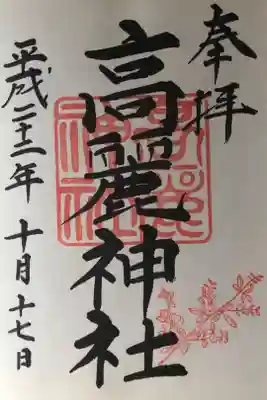 奉拝
高麗神社
高麗神社
平成二十二年 十月十七日